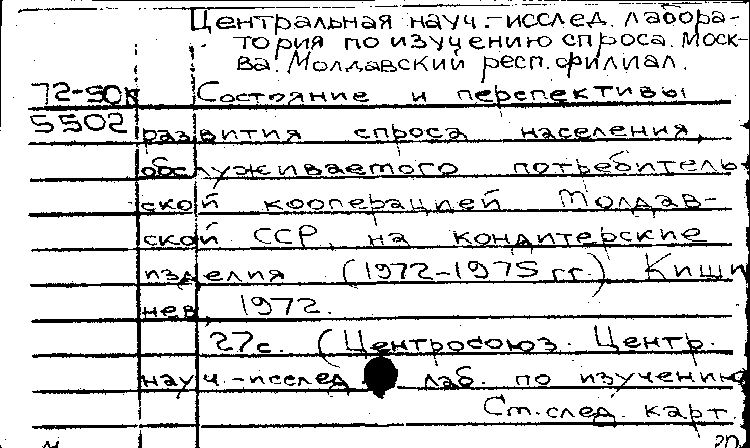 Центральная науч.-исслед. лабора-
тория по изучению спроса. Моск-
ва. Молдавский респ. филиал.
72-50к Состояние и перспективы
5502 развития спроса населения,
обслуживаемого потребитель-
ской кооперацией Молдав-
ской ССР, на кондитерские
изделия (1972-1975 гг.) Киши
нев, 1972.
27с. (Центросоюз. Центр.
науч.-исслед. лаб. по изучению
Ст. след. карт.